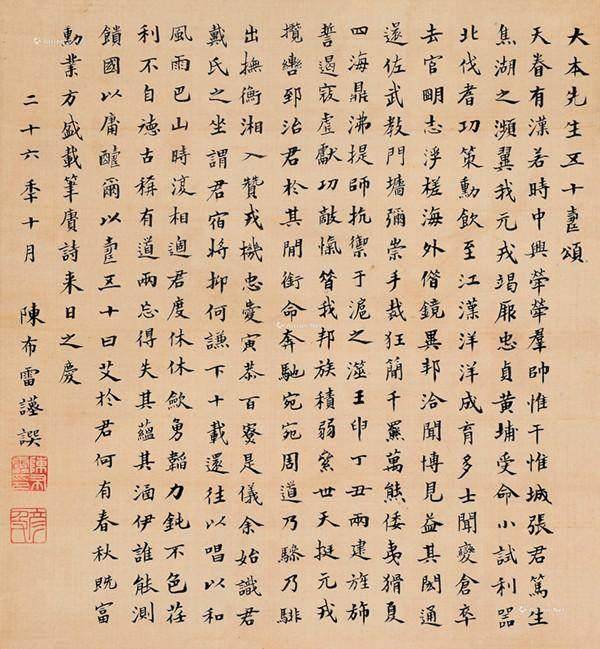 大本先生五十壽頌
天眷有漢若時中興犖犖羣帥惟干惟城張君篤生
焦湖之瀕翼我元戎竭厥忠貞黃埔受命小試利器
北伐者功策勳飲至江漢洋洋成育多士聞變倉卒
去官明志浮槎海外借鏡異邦洽聞博見益其閎通
還佐武教門墻彌崇手裁狂簡千羆萬熊倭夷猾夏
四海鼎沸提師抗禦于滬之澨壬申丁丑兩建旌旆
誓遏寇虐獻功敵愾昔我邦族積弱絫世天挺元戎
攬轡郅治君於其閒銜命奔馳宛宛周道乃驂乃騑
出撫衡湘入贊戎機忠愛寅恭百寮是儀余始識君
戴氏之坐謂君宿將抑何謙下十載還往以唱以和
風雨巴山時復相過君度休休歛勇韜力鈍不色荏
利不自德古稱有道兩忘得失其蘊其涵伊誰能測
饋國以庸醻爾以壽五十曰艾於君何有春秋既富
勳業方盛載筆賡詩來日之慶
二十六季十月 陳布雷謹譔